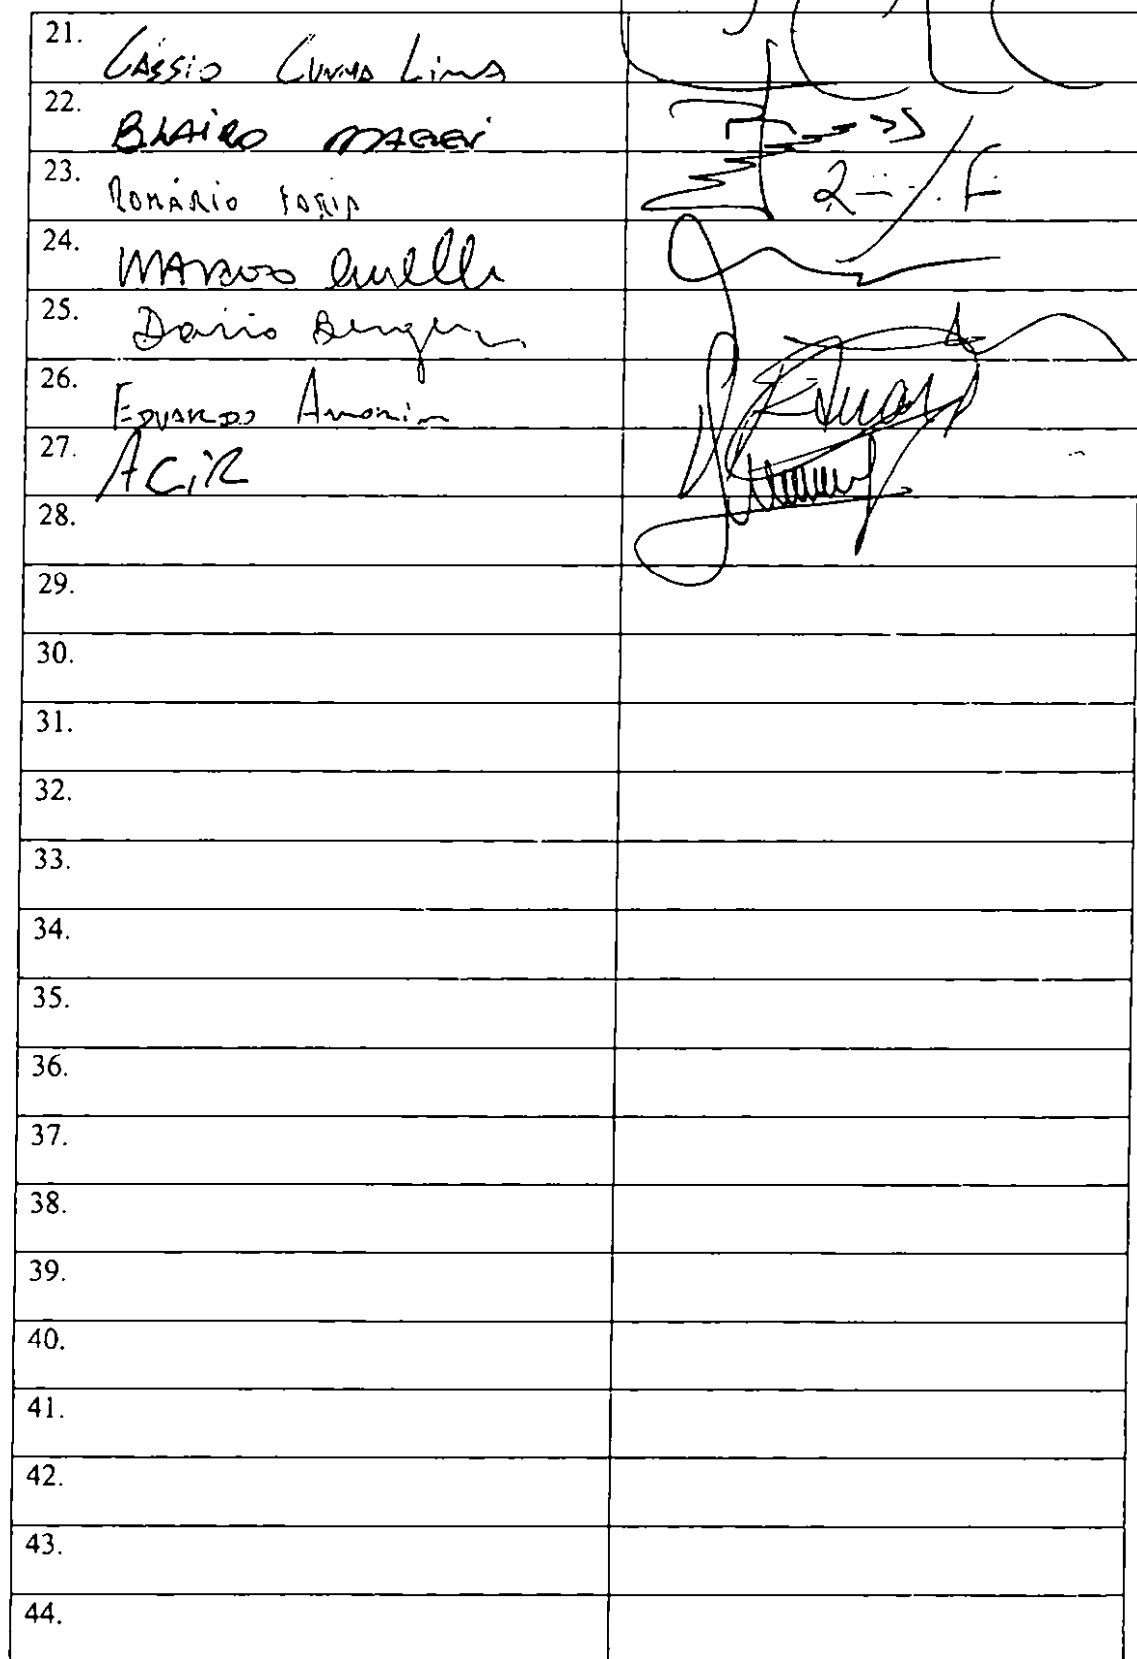 21. Cássio Cunha Lima
22. BLAIRO MAGGI
23. ROMÁRIO FARIA
24. MARCOS
25. Dario Berger
26. EDUARDO Amorim
27. ACiR
28.
29.
30.
31.
32.
33.
34.
35.
36.
37.
38.
39.
40.
41.
42.
43.
44.